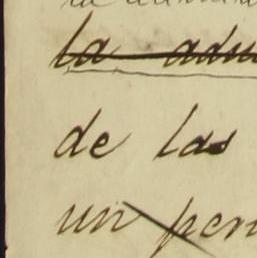 la adm
de las
un per